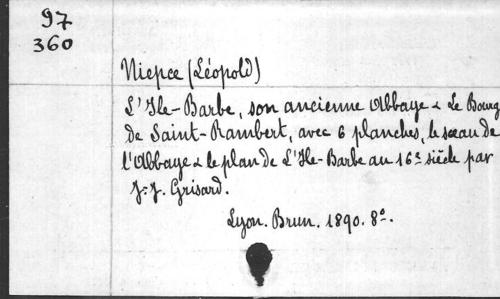 97
360
Niepce (Léopold)
L'Ile-Barbe, son ancienne Abbaye & Le Bourg
de Saint-Rambert, avec 6 planches, le sceau de
l'Abbaye & le plan de L'Ile-Barbe au 16e siècle par
J.-J. Grisard.
Lyon. Brun. 1890. 8º.